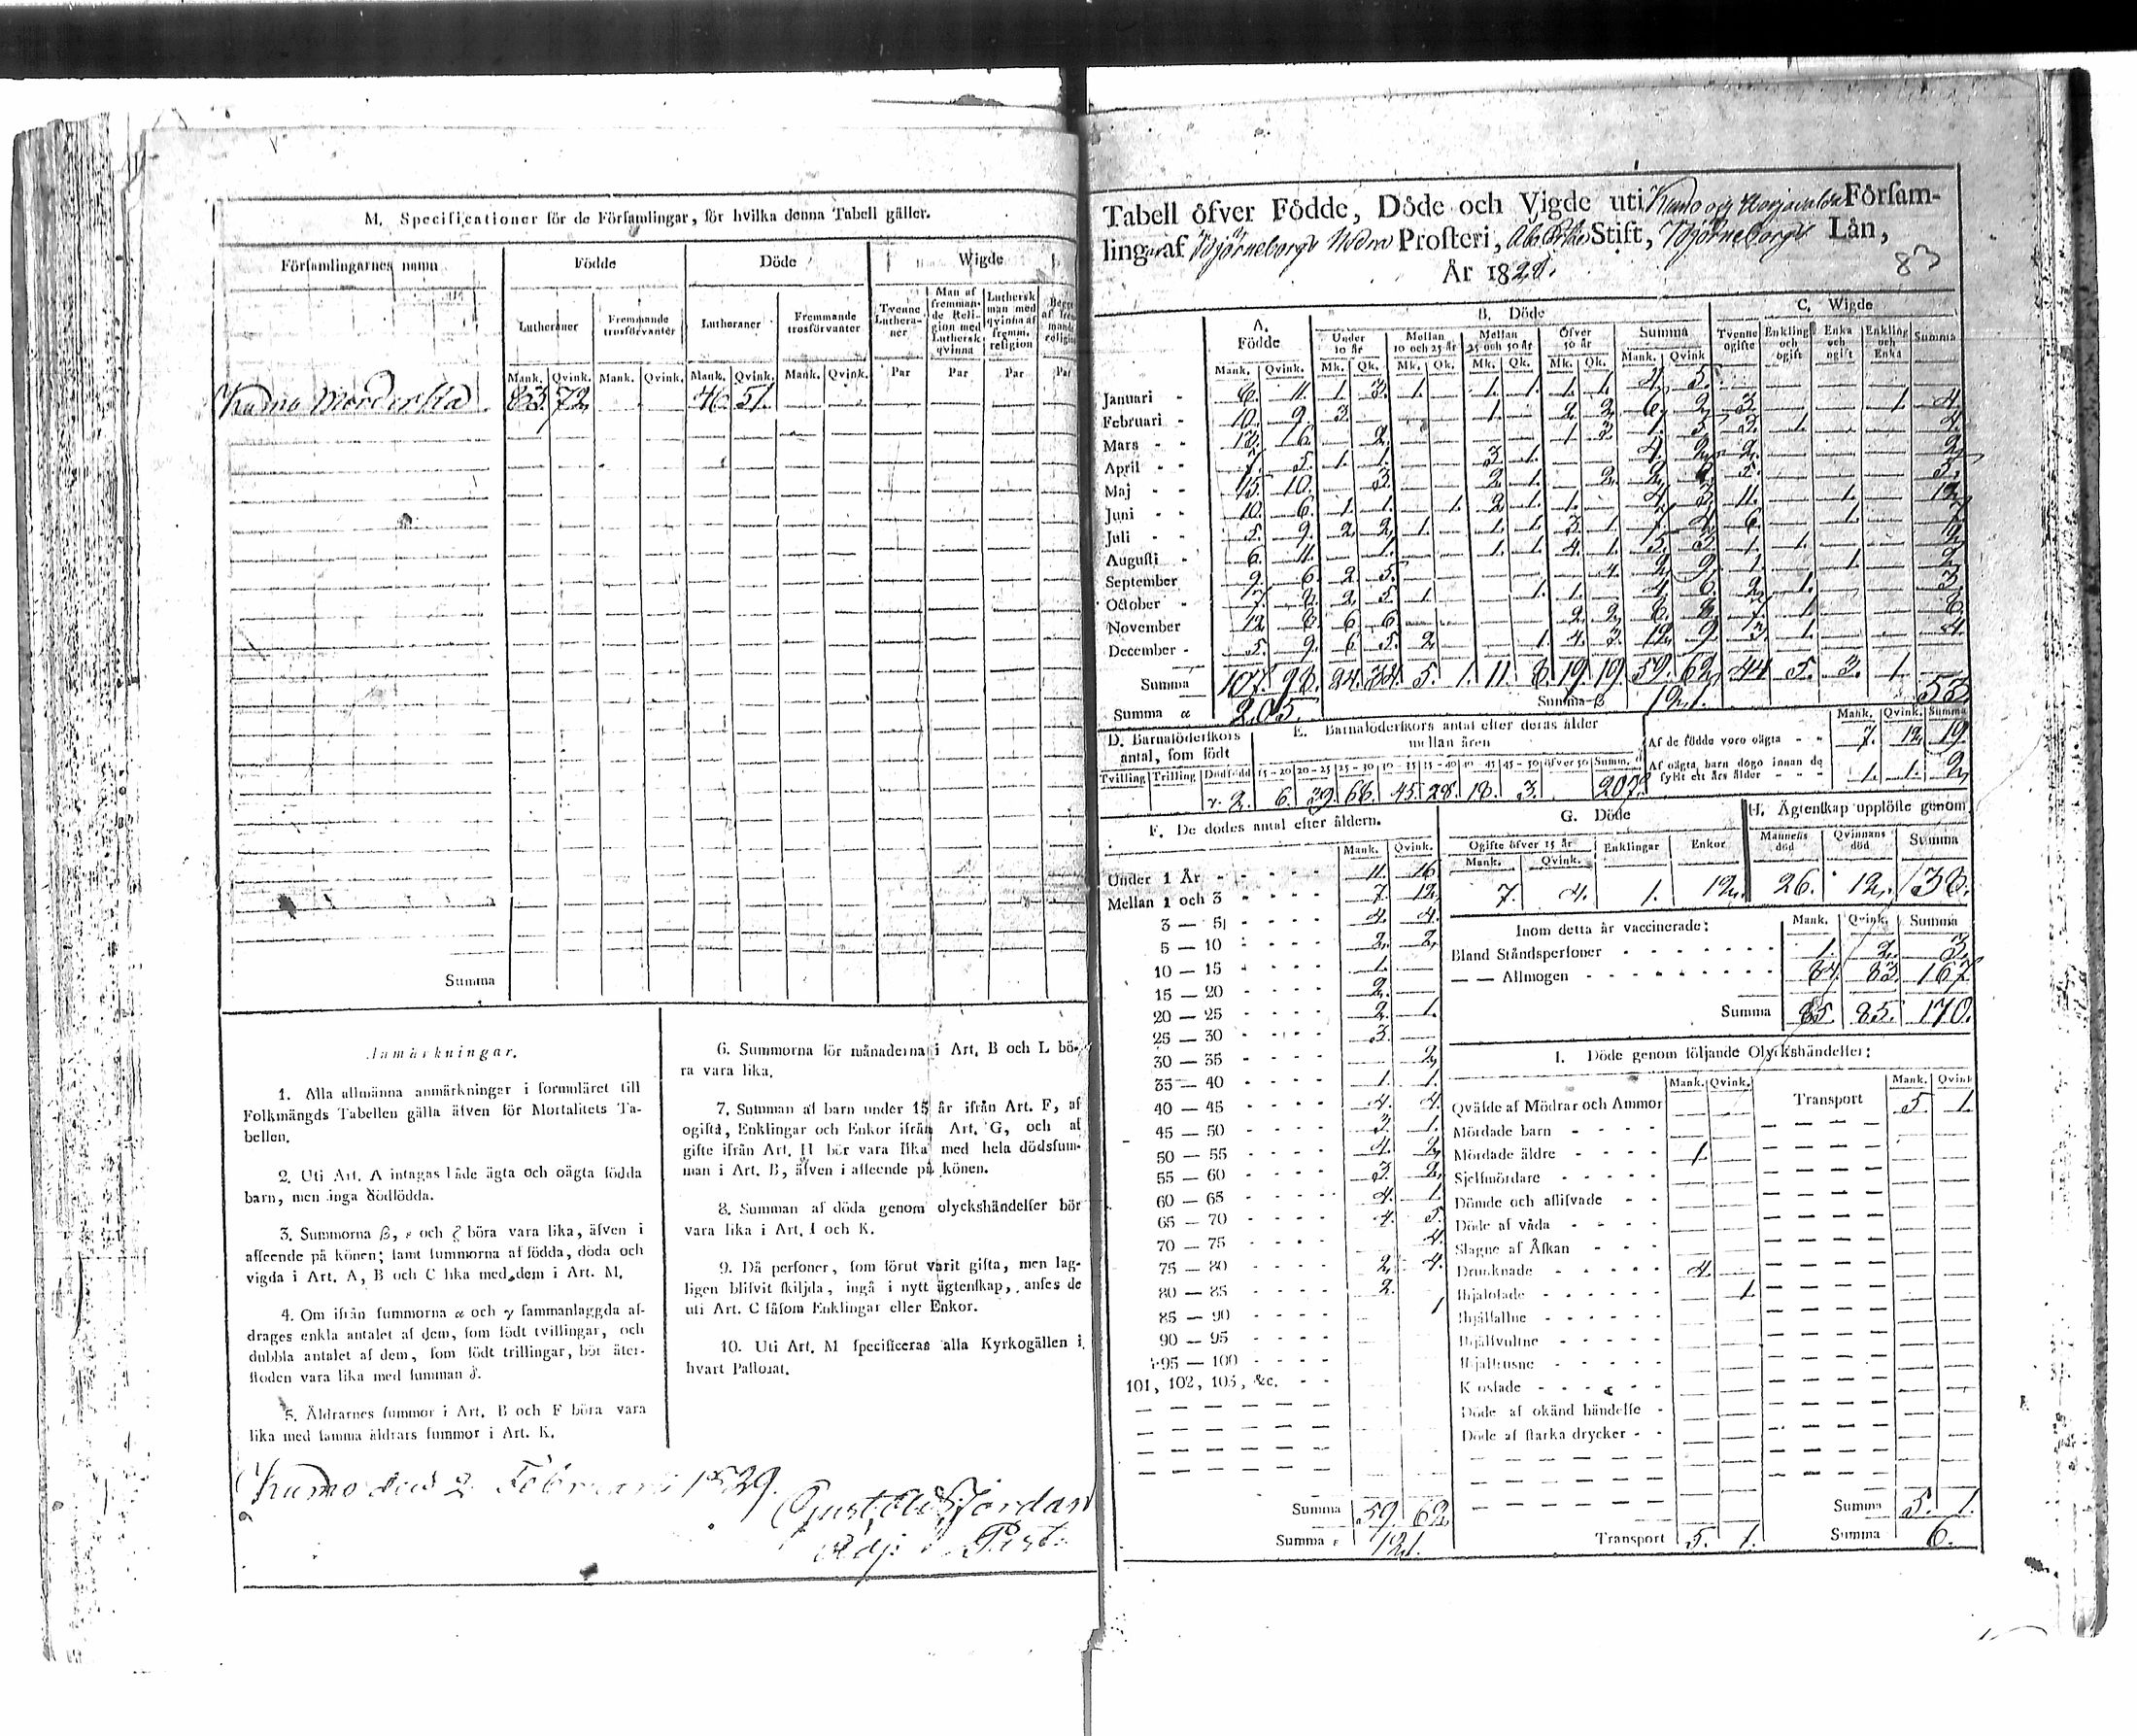 M. Specificationer för de Församlingar, för hvilka denna Tabell gäller.
Församlingarnes namn Födde Döde Wigde
Lutheraner Fremmande trosförvanter Lutheraner Fremmande trosförvanter Tvenne Lutheraner Man af fremmande Religion med Luthersk qvinna Luthersk man med qvinna af fremm. religion
Mank. Qvink. Mank. Qvink. Mank. Qvink. Mank. Qvink. Par Par Par Par
Kumo Moderkka 83. 72. 46. 51.
Summa
Anmärkningar.
1. Alla allmänna anmärkningar i formuläret till
Folkmängds Tabellen gälla äfven för Mortalitets Ta-
bellen.
2. Uti Art. A intagas både ägta och oägta födda
barn, men inga dödfödda.
3. Summorna β, ε och ζ böra vara lika, äfven i
afseende på könen; samt summorna af födda, döda och
vigda i Art. A, B och C lika med dem i Art. M.
4. Om ifrån summorna α och γ sammanlaggda af-
drages enkla antalet af dem, som födt tvillingar, och
dubbla antalet af dem, som födt trillingar, bör åter-
stoden vara lika med summan δ.
5. Åldrarnes summor i Art. B och F böra vara
lika med samma åldrars summor i Art. K.
6. Summorna för månaderna i Art. B och L bö-
ra vara lika.
7. Summan af barn under 15 år ifrån Art. F, af
ogifta, Enklingar och Enkor ifrån Art. G, och af
gifte ifrån Art. H bör vara lika med hela dödsfum-
man i Art. B, äfven i afseende på könen.
8. Summan af döda genom olyckshändelser bör
vara lika i Art. I och K.
9. Då personer, som förut varit gifta, men lag-
ligen blifvit skiljda, ingå i nytt ägtenskap, anses de
uti Art. C såsom Enklingar eller Enkor.
10. Uti Art. M specificeras alla Kyrkogällen i
hvart Pastorat.
Kumo den 2 Februari 1829.
Gust. Jordan
Adj:
Tabell öfver Födde, Döde och Vigde uti Kumo och Församling af Björneborgs Prosteri, Åbo Stift, Björneborgs Län,
År 1828.
83
A. Födde B. Döde C. Wigde
Under 10 år Mellan 10 och 25 år Mellan 25 och 50 år Öfver 50 år Summa Tvenne ogifte Enkling och ogift Enka och ogift Enkling och Enka Summa
Mank. Qvink. Mk. Qk. Mk. Qk. Mk. Qk. Mk. Qk. Mank. Qvink
Januari 8. 11. 1. 3. 1. 1. 1. 1. 1. 4. 5.
Februari 10. 9. 3. 1. 2. 2. 6. 2. 3. 1. 4.
Mars 2. 1. 3. 1. 5. 3. 1. 4.
April 7. 5. 1. 1. 3. 1. 4. 2. 2. 2.
Maj 15. 10. 3. 2. 1. 2. 2. 6. 5. 5.
Juni 10. 6. 1. 1. 1. 2. 1. 1. 4. 3. 11. 1. 12.
Juli 5. 9. 2. 2. 1. 1. 1. 3. 1. 7. 4. 6. 1. 7.
Augusti 6. 11. 1. 1. 1. 4. 1. 5. 3. 1. 1. 2.
September 9. 6. 2. 5. 4. 2. 9. 1. 1. 2.
October 7. 2. 2. 5. 1. 1. 1. 4. 6. 2. 1. 3.
November 12. 8. 6. 6. 2. 2. 8. 8. 7. 1. 8.
December 5. 9. 6 5. 2. 1. 4. 3. 12. 9. 3. 1. 4.
Summa 107. 98. 24. 34. 5. 1. 11. 8. 19. 19. 59. 62. 44. 5. 3. 1. 53
Summa α 205. Summa β 121.
D. Barnaföderskors antal, som födt
E. Barnaföderskors antal efter deras ålder mellan åren
Tvilling Trilling Dödfödd 15-20 20-25 25-30 30-35 35-40 40-45 45-50 öfver 50 Summ. δ
γ. 2. 6. 39. 68. 45. 28. 18. 3. 207.
Mank. Qvink. Summa
Af de födde voro oägta 7. 12. 19.
Af oägta barn dogo innan de fyllt ett års ålder 1. 1. 2.
F. De dödes antal efter åldern.
Mank. Qvink.
Under 1 År 11. 16
Mellan 1 och 3 7. 12.
3 — 5 4. 4.
5 — 10 2. 2.
10 — 15 1.
15 — 20 2.
20 — 25 2. 1.
25 — 30 3.
30 — 35 2.
35 — 40 1. 1.
40 — 45 4. 4.
45 — 50 3. 1.
50 — 55 4. 2.
55 — 60 3. 2.
60 — 65 4. 1.
65 — 70 4. 5.
70 — 75 4.
75 — 80 2. 4.
80 — 85 2.
85 — 90 1
90 — 95
95 — 100
101, 102, 103, &c.
Summa 59. 62.
Summa ε 121.
G. Döde
Ogifte öfver 15 år Enklingar Enkor
Mank. Qvink.
7. 4. 1. 12.
H. Ägtenskap upplöste genom
Mannens död Qvinnans död Summa
26. 12. 38.
Inom detta år vaccinerade: Mank. Qvink. Summa
Bland Ståndspersoner 1. 2. 3.
— — Allmogen 84. 83. 167.
Summa 85. 85. 170.
I. Döde genom följande Olyckshändelser:
Mank. Qvink. Mank. Qvink
Qväfde af Mödrar och Ammor Transport 5. 1.
Mördade barn
Mördade äldre 1.
Sjelfmördare
Dömde och aflifvade
Döde af våda
Slagne af Åskan
Drunknade 4.
Ihjälofade 1.
Ihjälfallne
Ihjälsvultne
Ihjälfrusne
K osfade
Döde af okänd händelse
Döde af starka drycker
Summa 5. 1.
Transport 5. 1. Summa 6.